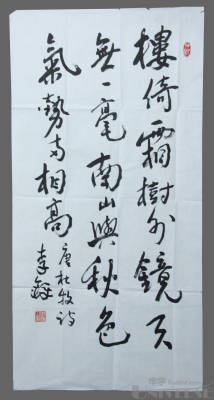 樓倚霜樹外鏡天
無一毫南山與秋色
氣勢高相高
唐杜牧詩
李鐸